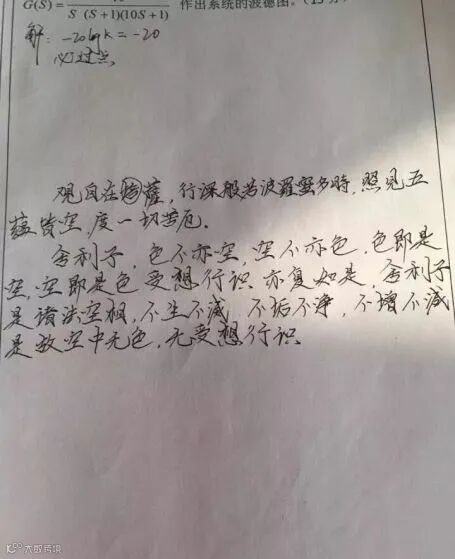 G(S)= S (S+1)(10S+1) 作出系统的波德图。(15分)
解: -20lgk=-20
必过点
观自在菩薩,行深般若波羅蜜多時,照见五
蕴皆空,度一切苦厄.
舍利子,色不亦空,空不亦色,色即是
空,空即是色受想行识.亦复如是,舍利子
是诸法空相,不生不滅,不垢不净,不增不減
是故空中无色,无受想行识